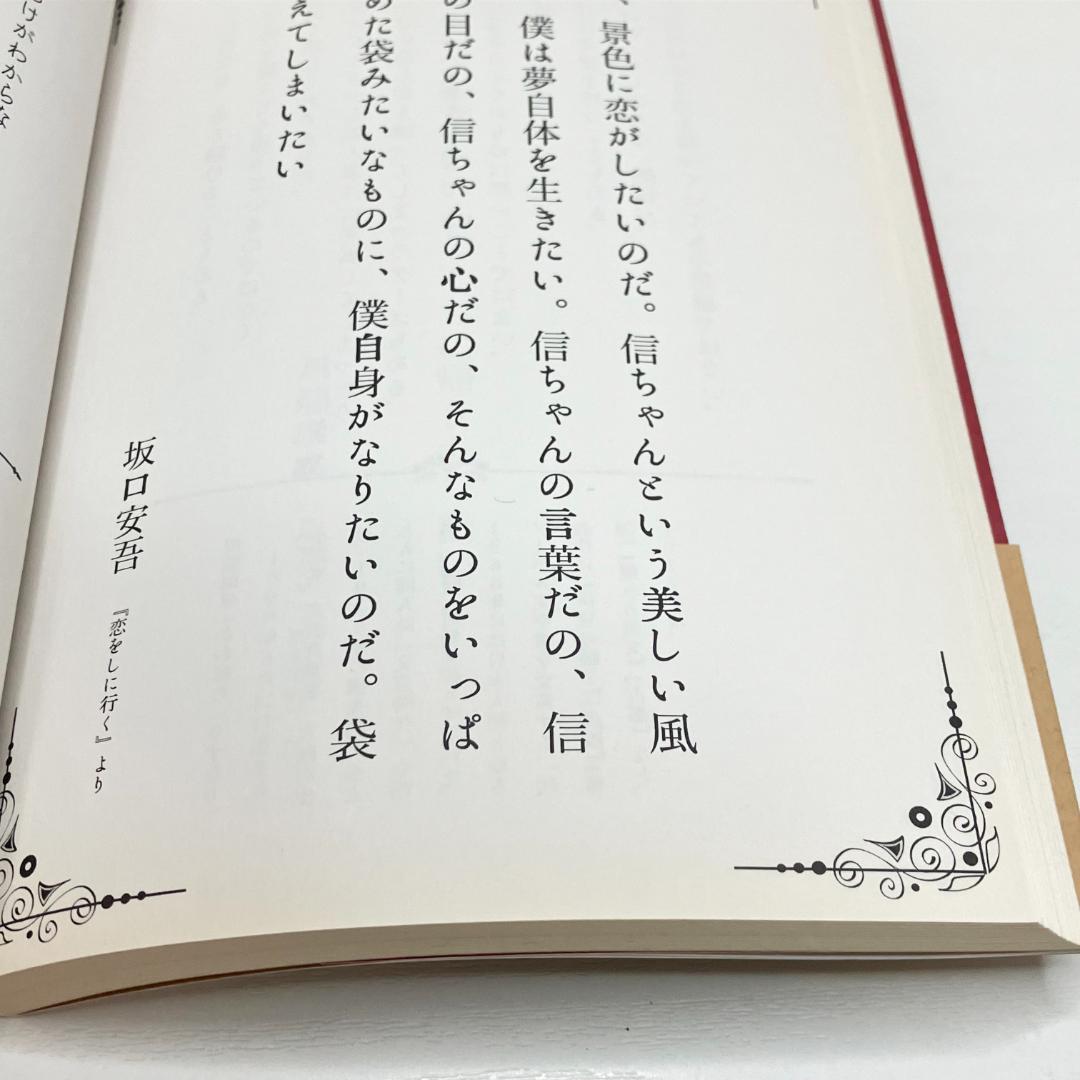 、景色に恋がしたいのだ。信ちゃんという美しい風
僕は夢自体を生きたい。信ちゃんの言葉だの、信
の目だの、信ちゃんの心だの、そんなものをいっぱ
めた袋みたいなものに、僕自身がなりたいのだ。袋
えてしまいたい
坂口安吾 『恋をしに行く』より
けがわからな